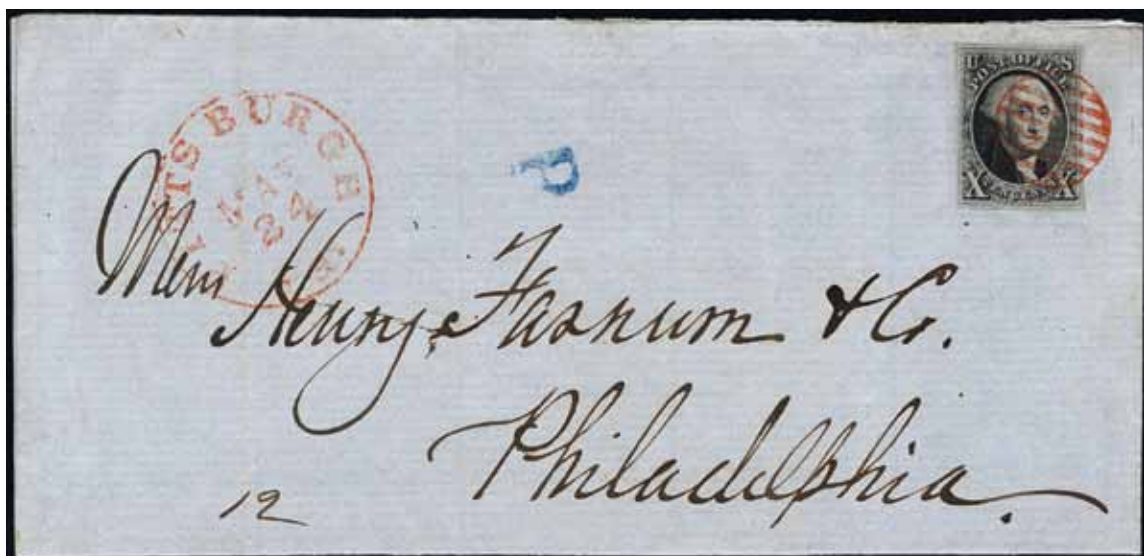 U S
POST OFFICE
X X
PITTSBURGH
24
P
Mess Henry Farnum & Co.
Philadelphia.
12